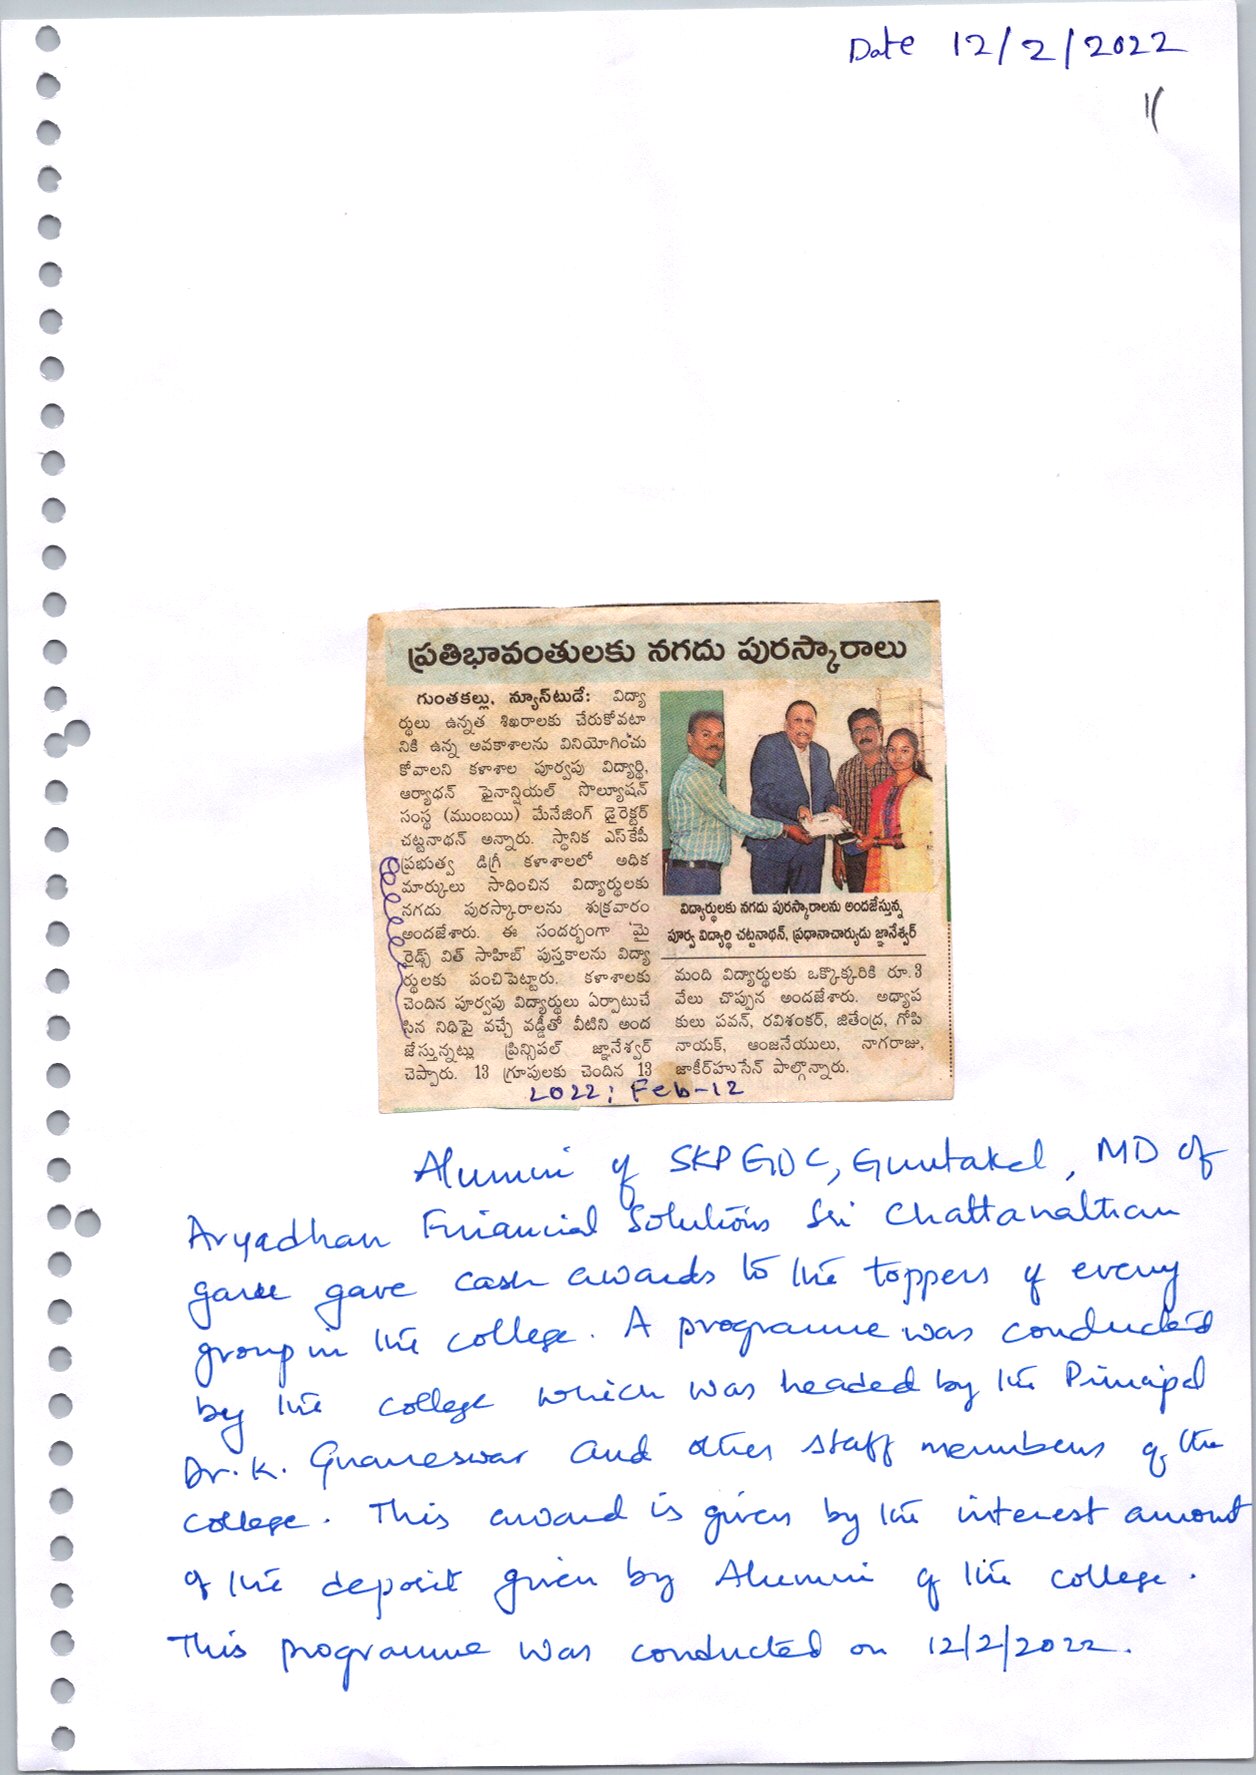 Date 12/2/2022
11
ప్రతిభావంతులకు నగదు పురస్కారాలు
గుంతకల్లు, న్యూస్‌టుడే: విద్యా
ర్థులు ఉన్నత శిఖరాలకు చేరుకోవటా
నికి ఉన్న అవకాశాలను వినియోగించు
కోవాలని కళాశాల పూర్వపు విద్యార్థి,
ఆర్యాధన్ ఫైనాన్షియల్ సొల్యూషన్
సంస్థ (ముంబయి) మేనేజింగ్ డైరెక్టర్
చట్టనాథన్ అన్నారు. స్థానిక ఎస్‌కేపీ
ప్రభుత్వ డిగ్రీ కళాశాలలో అధిక
మార్కులు సాధించిన విద్యార్థులకు
నగదు పురస్కారాలను శుక్రవారం
అందజేశారు. ఈ సందర్భంగా 'మై
రైడ్స్ విత్ సాహిబ్' పుస్తకాలను విద్యా
ర్థులకు పంచిపెట్టారు. కళాశాలకు
చెందిన పూర్వపు విద్యార్థులు ఏర్పాటుచే
సిన నిధిపై వచ్చే వడ్డీతో వీటిని అంద
జేస్తున్నట్లు ప్రిన్సిపల్ జ్ఞానేశ్వర్
చెప్పారు. 13 గ్రూపులకు చెందిన 13
విద్యార్థులకు నగదు పురస్కారాలను అందజేస్తున్న
పూర్వ విద్యార్థి చట్టనాథన్, ప్రధానాచార్యుడు జ్ఞానేశ్వర్
మంది విద్యార్థులకు ఒక్కొక్కరికి రూ.3
వేలు చొప్పున అందజేశారు. అధ్యాప
కులు పవన్, రవిశంకర్, జితేంద్ర, గోపి
నాయక్, ఆంజనేయులు, నాగరాజు,
జాకీర్‌హుసేన్ పాల్గొన్నారు.
2022; Feb-12
Alumni of SKPGDC, Guntakal, MD of
Aryadhan Financial Solutions Sri Chattanathan
garu gave cash awards to the toppers of every
group in the college. A programme was conducted
by the college which was headed by the Principal
Dr. K. Gnaneswar and other staff members of the
college. This award is given by the interest amount
of the deposit given by Alumni of the college.
This programme was conducted on 12/2/2022.